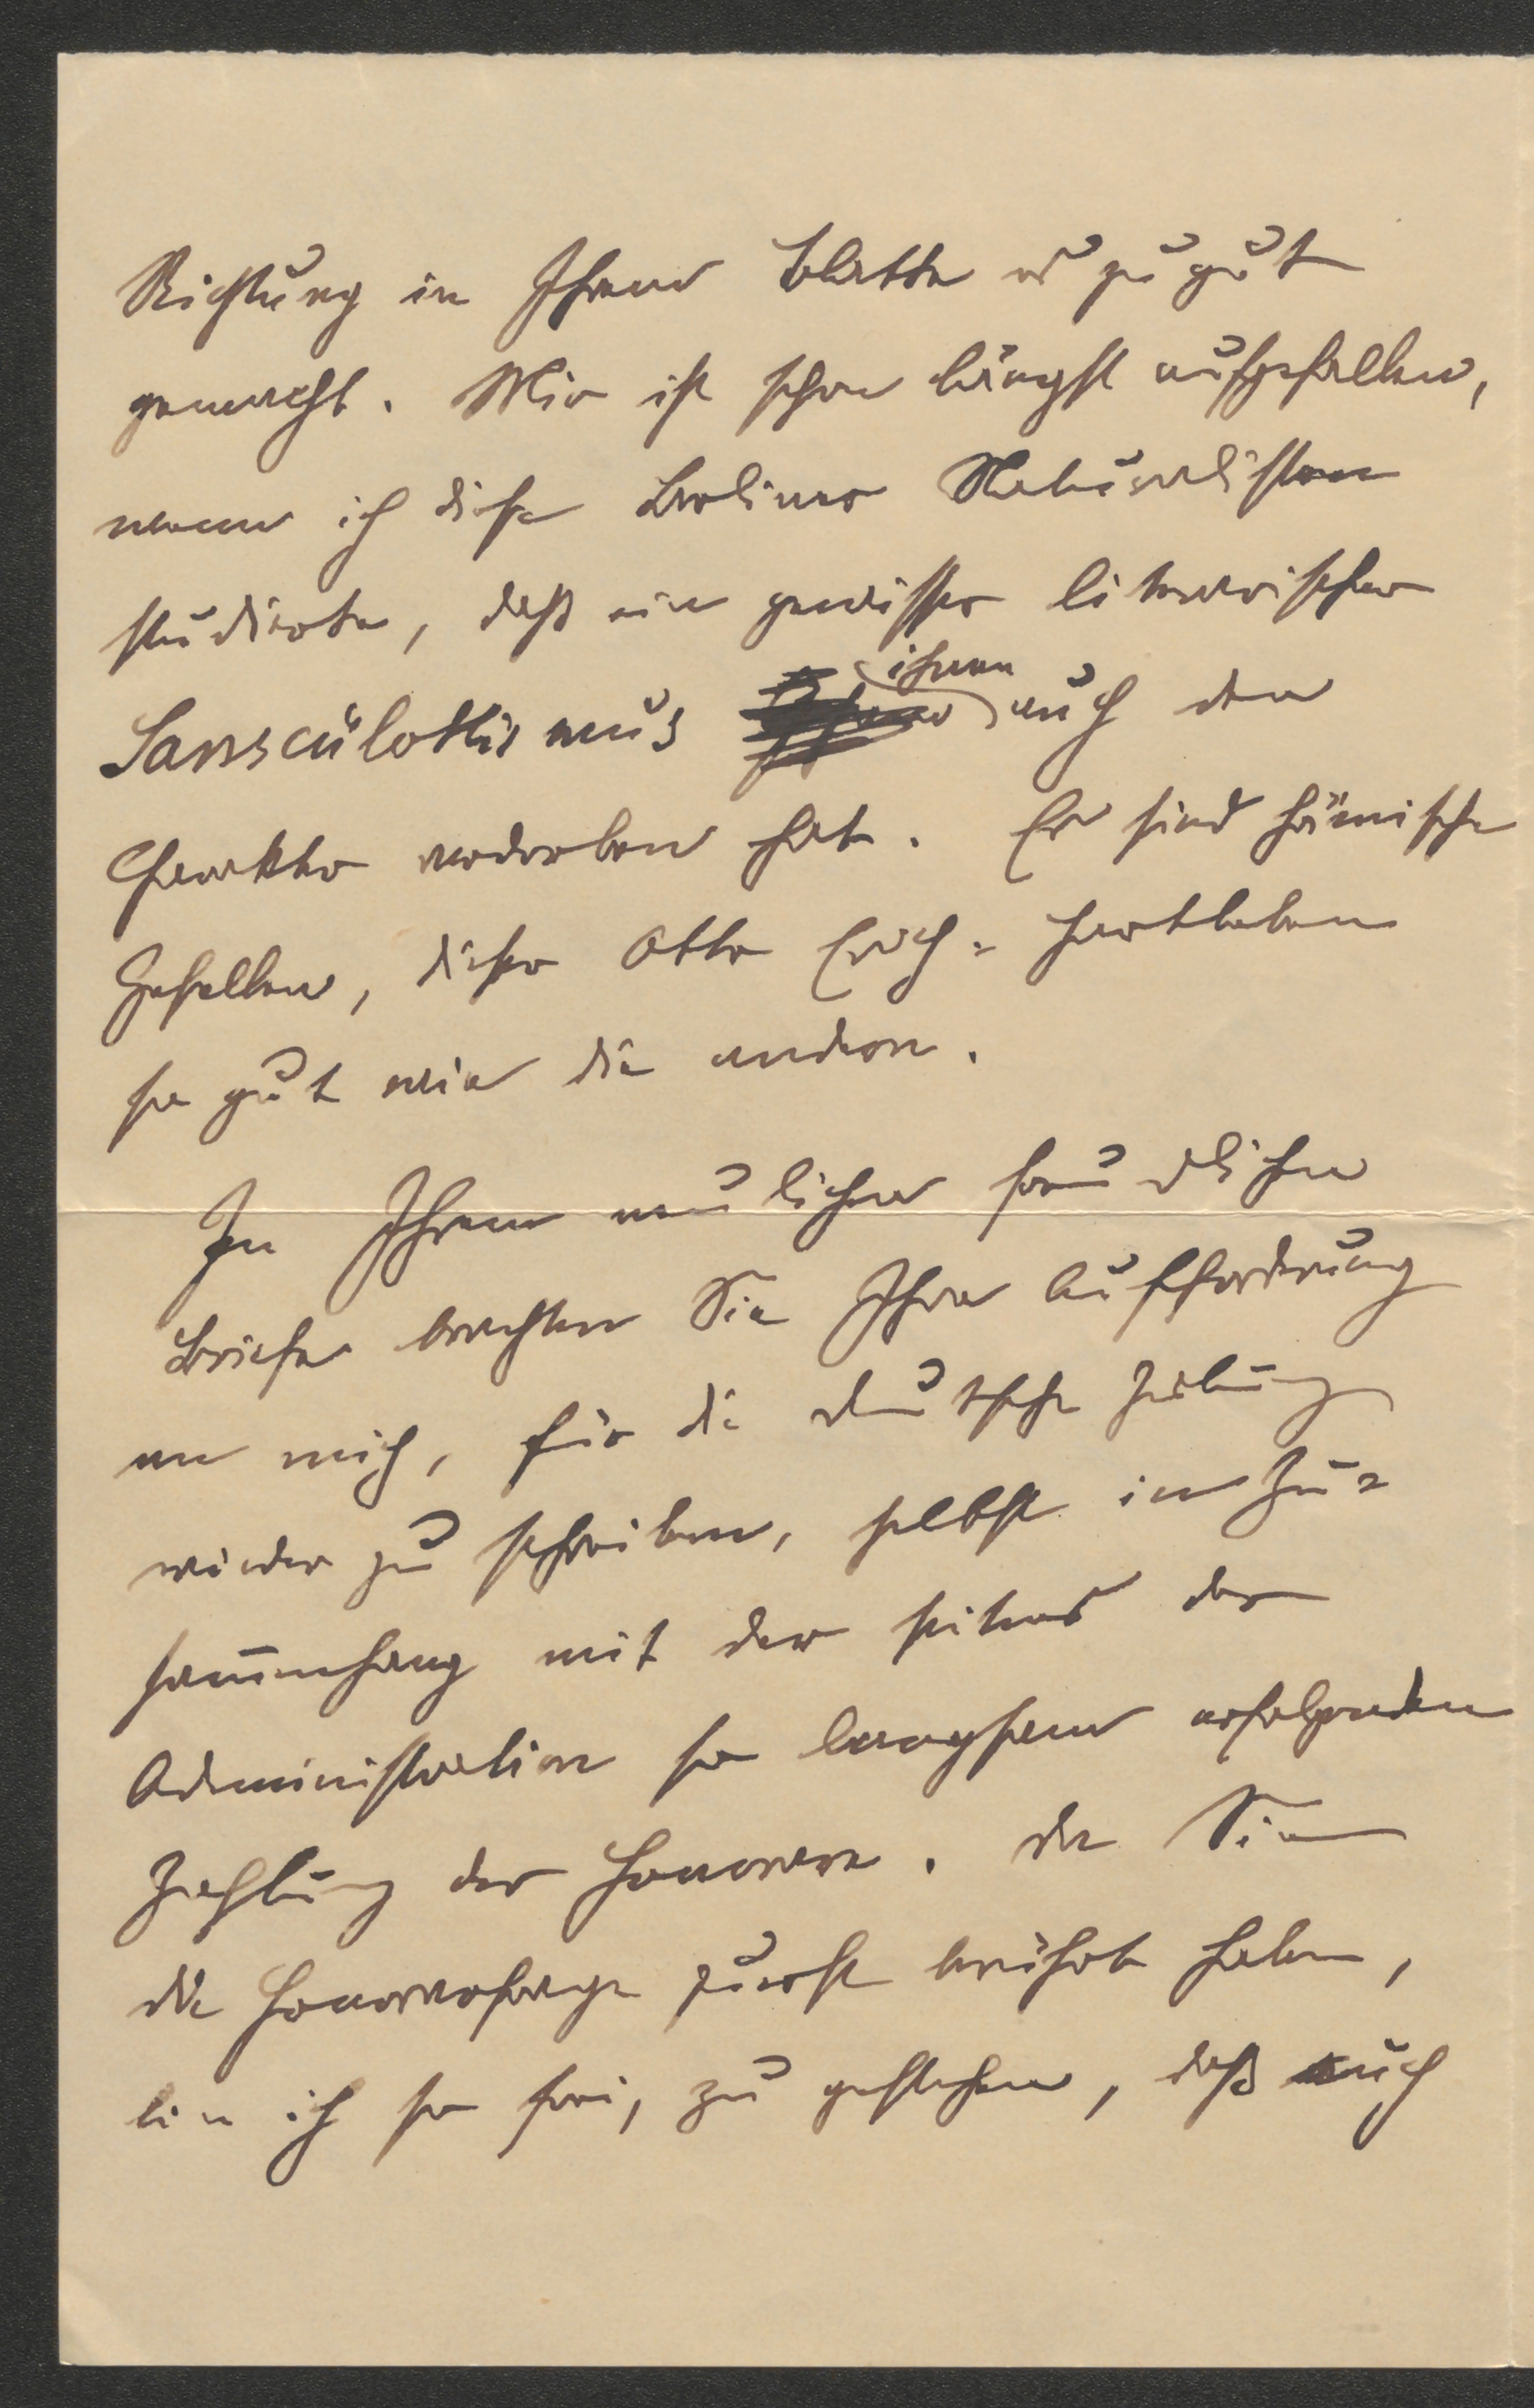 Richtung in Ihrem Blatte zu gut
gemacht. Mir ist schon längst aufgefallen,
wenn ich diese Berliner Naturalisten
studierte, daß ein gewisser literarischer
Sansculottismus ihnen auch den
Charakter verdorben hat. Es sind hämische
Gesellen, dieser Otto Erich-Hartleben
so gut wie die andern.
In Ihrem neulichen freundlichen
Briefe brachten Sie Ihre Aufforderung
an mich, für die deutsche Zeitung
wieder zu schreiben, selbst in Zu-
sam̄enhang mit der seitens der
Administration so langsam erfolgenden
Zahlung der Honorare. Da Sie
die Honorarfrage zuerst berührt haben,
bin ich so frei, zu gestehen, daß auch